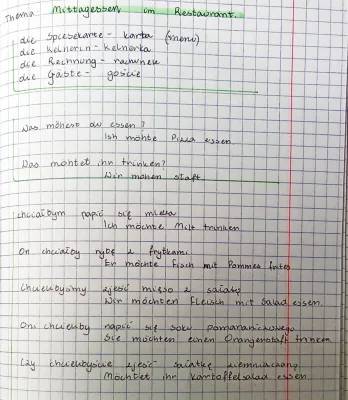 Thema Mittagessen im Restaurant.
die Speisekarte - karta (menu)
die Kelnerin - kelnerka
die Rechnung - rachunek
die Gäste - goście
Was möhest du essen?
Ish möhte Pizza essen
Was möhtet ihr trinken?
Wir möhen staft
chciałbym napić się mleka
Ich möchte Milt trinken
On chciałby rybę z frytkami
Er möchte Fisch mit Pommes frites
Chcielibyśmy zjeść mięso z sałatą
Wir möchten Fleisch mit Salad essen.
Oni chcieliby napić się soku pomarańczowego
Sie möchten einen Orangenstaft trinken
Czy chcielibyście zjeść sałatkę ziemniaczaną
Möchtet ihr Kartoffelsalad essen.